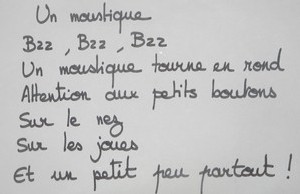 Un moustique
Bzz, Bzz, Bzz
Un moustique tourne en rond
Attention aux petits boutons
Sur le nez
Sur les joues
Et un petit peu partout !